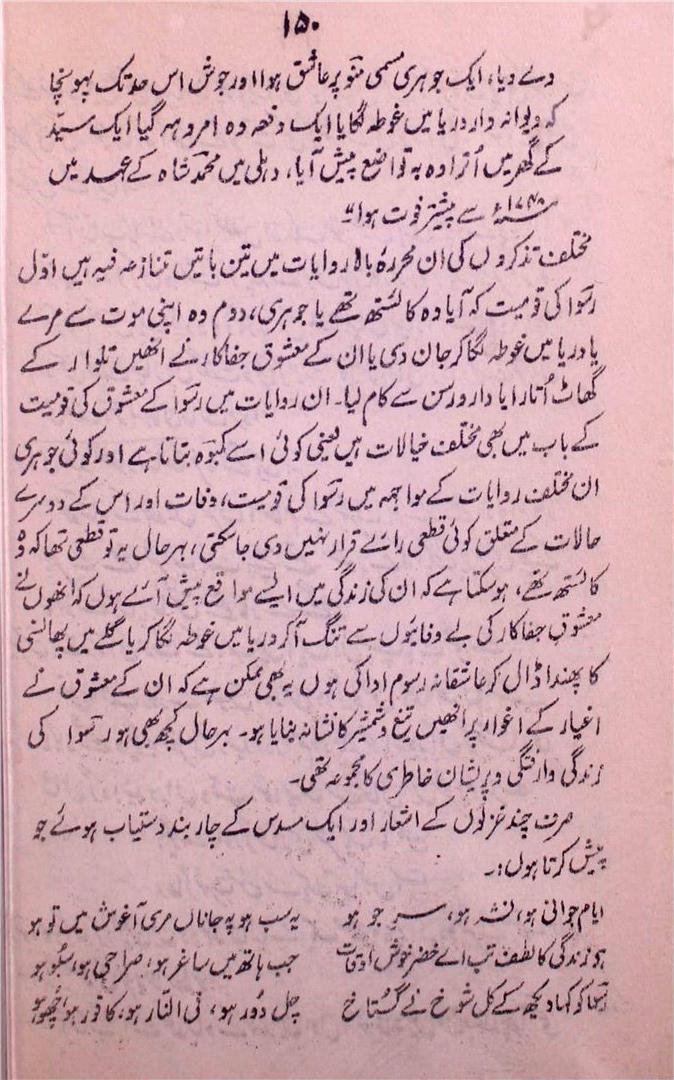 ۱۵۰
دے دیا، ایک جوہری مسمی متّو پر عاشق ہوا اور جوش اس حد تک پہونچا
کہ دیوانہ وار دریا میں غوطہ لگایا ایک دفعہ وہ امروہہ گیا ایک سیّد
کے گھر میں اُترا وہ بہ تواضع پیش آیا، دہلی میں محمد شاہ کے عہد میں
۱۷۴۸ء سے پیشتر فوت ہوا"
مختلف تذکروں کی ان محررہ بالا روایات میں تین باتیں تنازعہ فیہ ہیں اوّل
رسوا کی قومیت کہ آیا وہ کائستھ تھے یا جوہری، دوم وہ اپنی موت سے مرے
یا دریا میں غوطہ لگا کر جان دی یا ان کے معشوق جفاکار نے انھیں تلوار کے
گھاٹ اُتارا یا دار ورسن سے کام لیا۔ ان روایات میں رسوا کے معشوق کی قومیت
کے باب میں بھی مختلف خیالات ہیں یعنی کوئی اسے کنبوہ بتاتا ہے اور کوئی جوہری
ان مختلف روایات کے مواجہہ میں رسوا کی قومیت، وفات اور اس کے دوسرے
حالات کے متعلق کوئی قطعی رائے قرار نہیں دی جاسکتی، بہرحال یہ تو قطعی تھا کہ وہ
کائستھ تھے، ہوسکتا ہے کہ ان کی زندگی میں ایسے مواقع پیش آئے ہوں کہ انھوں نے
معشوق جفاکار کی بے وفائیوں سے تنگ آکر دریا میں غوطہ لگا کر یا گلے میں پھانسی
کا پھندا ڈال کر عاشقانہ رسوم ادا کی ہوں یہ بھی ممکن ہے کہ ان کے معشوق نے
اغیار کے اغوا پر انھیں تیغ و شمشیر کا نشانہ بنایا ہو۔ بہرحال کچھ بھی ہو رسوا کی
زندگی وارفتگی و پریشان خاطری کا مجموعہ تھی۔
صرف چند غزلوں کے اشعار اور ایک مسدس کے چار بند دستیاب ہوئے جو
پیش کرتا ہوں:۔
ایام جوانی ہو، نشہ ہو، سرِ جو ہو یہ سب ہو پہ جاناں مری آغوش میں تو ہو
ہو زندگی کا لطف تب اے خضر خوش اوقات جب ہاتھ میں ساغر ہو، صراحی ہو، سبو ہو
رسوا کو کہا دیکھ کے کل شوخ نے گستاخ چل دُور ہو، فی النّار ہو، کافور ہو،